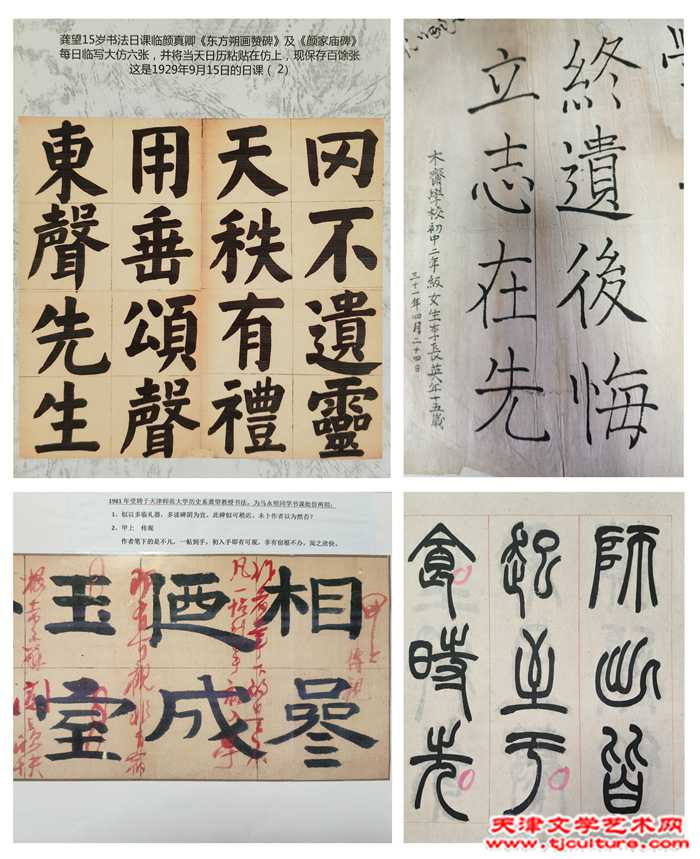 龚望15岁书法日课临颜真卿《东方朔画赞碑》及《颜家庙碑》
每日临写大仿六张，并将当天日历粘贴在仿上，现保存百馀张
这是1929年9月15日的日课（2）
罔不遺靈
天秩有禮
用垂頌聲
東聲先生
終遺後悔
立志在先
木齋學校初中二年級女生李長英年十五歲
三十一年四月二十四日
1981年受聘于天津师范大学历史系龚望教授书法，为马永明同学书课批仿两则：
1、似以多临礼器，多读碑阴为宜，此碑似可稍迟，未卜作者以为然否？
2、甲上 传观
作者笔下的是不凡，一帖到手，初入手即有可观，非有宿根不办，阅之欣快。
甲上
傳觀
相
陋成
玉室
師出皆
起至于
食時先
天津文学艺术网
www.tjculture.com